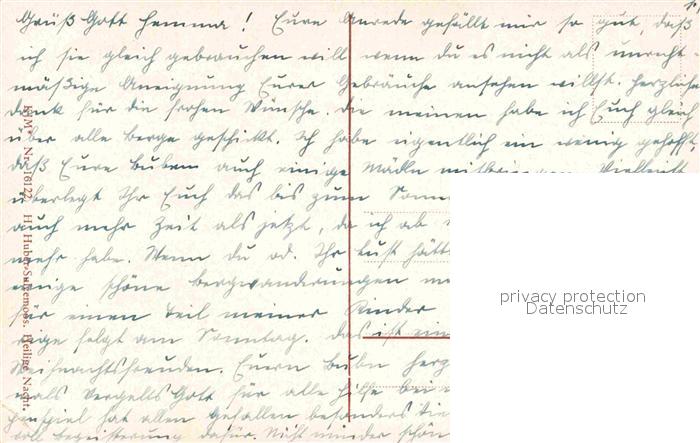 1.
Grüß Gott Hemma! Eure Anrede gefällt mir so gut, daß
ich sie gleich gebrauchen will wenn du es nicht als unrecht-
mäßige Aneignung Eurer Gebräuche ansehen willst. Herzlichen
Dank für die frohen Wünsche. Die meinen habe ich Euch gleich
über alle Berge geschickt. Ich habe eigentlich ein wenig gehofft,
daß Eure Buben auch einige Mädln Vielleicht
überlegt Ihr Euch das bis zum Sonn
auch mehr Zeit als jetzt, da ich ab
mehr habe. Wenn du od. Ihr Lust hätt
einige schöne Bergwanderungen
für einen Teil meiner Kinder
folgt am Sonntag. Das ist ein
Weihnachtsfreuden. Euern Bubn herz
mals Vergelts Gott für alle Hilfe bei
hat allen gefallen besonders die
voll Begeisterung dafür. Nicht minder schön
K.I.M. Nr. 16122. H. Huber-Sulzemoos. Heilige Nacht.
privacy protection
Datenschutz